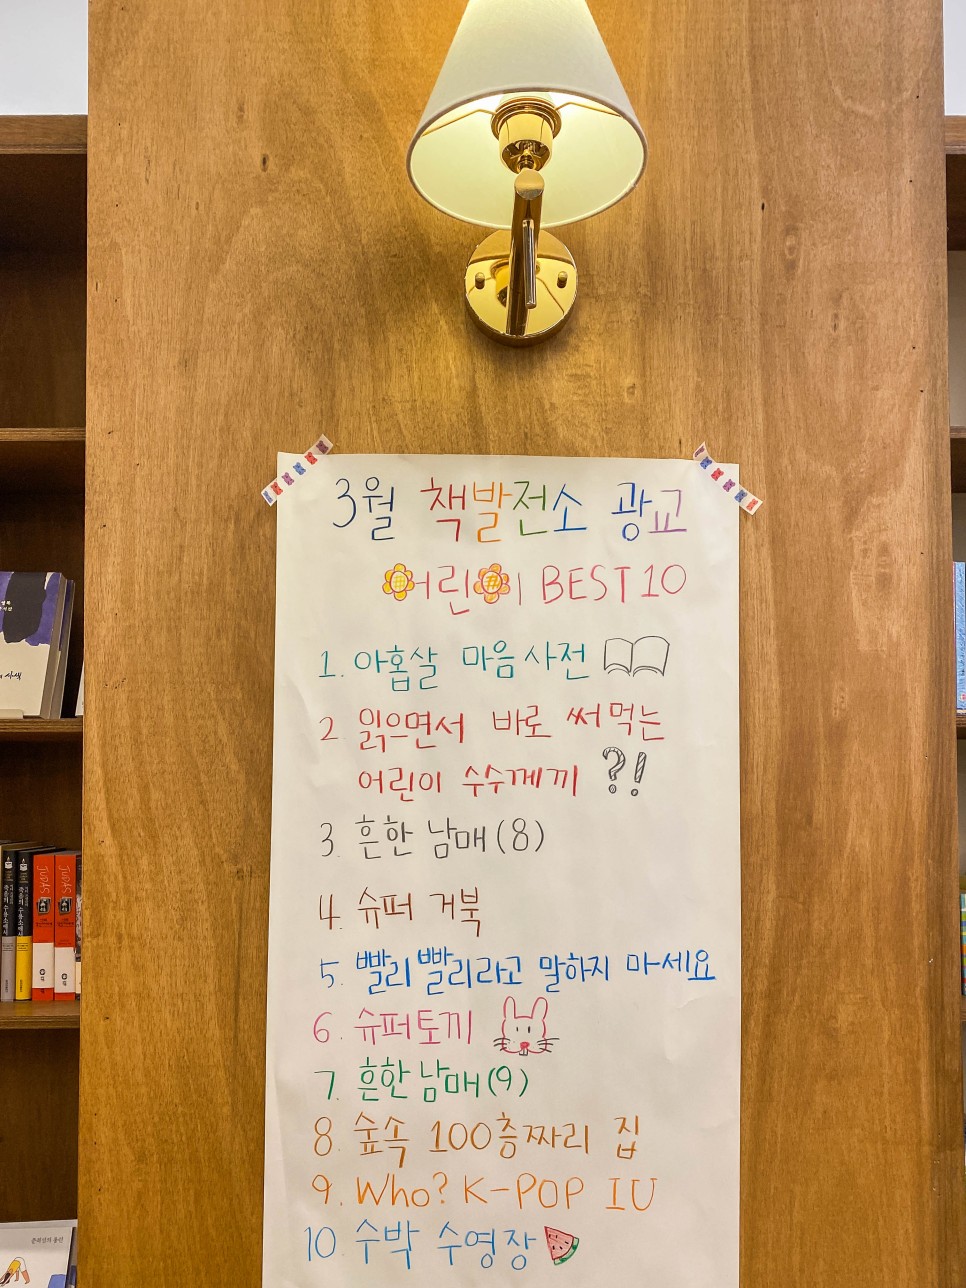 3월 책발전소 광교
어린이 BEST 10
1. 아홉살 마음 사전
2 읽으면서 바로 써먹는
어린이 수수께끼 ?!
3. 흔한 남매 (8)
4. 슈퍼 거북
5. 빨리 빨리라고 말하지 마세요
6. 슈퍼토끼
7. 흔한 남매 (9)
8. 숲속 100층짜리 집
9. Who? K-POP IU
10 수박 수영장
JUDAS
JUDAS